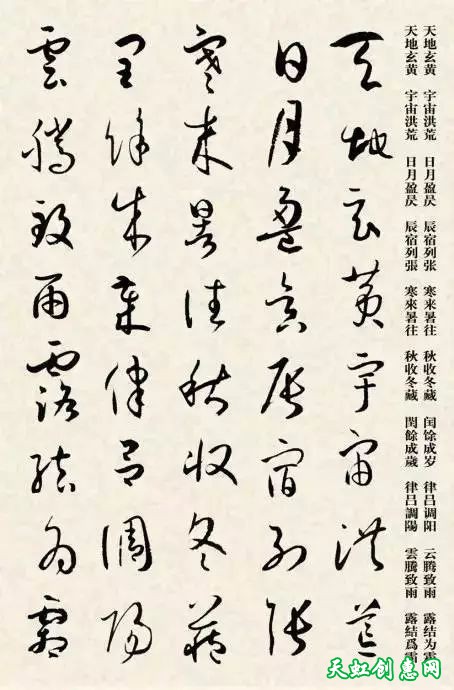 天地玄黄 宇宙洪荒 日月盈昃 辰宿列张 寒来暑往 秋收冬藏 闰馀成岁 律吕调阳 云腾致雨 露结为霜
天地玄黄 宇宙洪荒 日月盈昃 辰宿列張 寒來暑往 秋收冬藏 閏餘成歲 律吕調陽 雲騰致雨 露結爲霜
天地玄黄宇宙洪荒
日月盈昃辰宿列張
寒来暑往秋收冬藏
閏餘成歲律吕調陽
雲騰致雨露結為霜
天虹创惠网